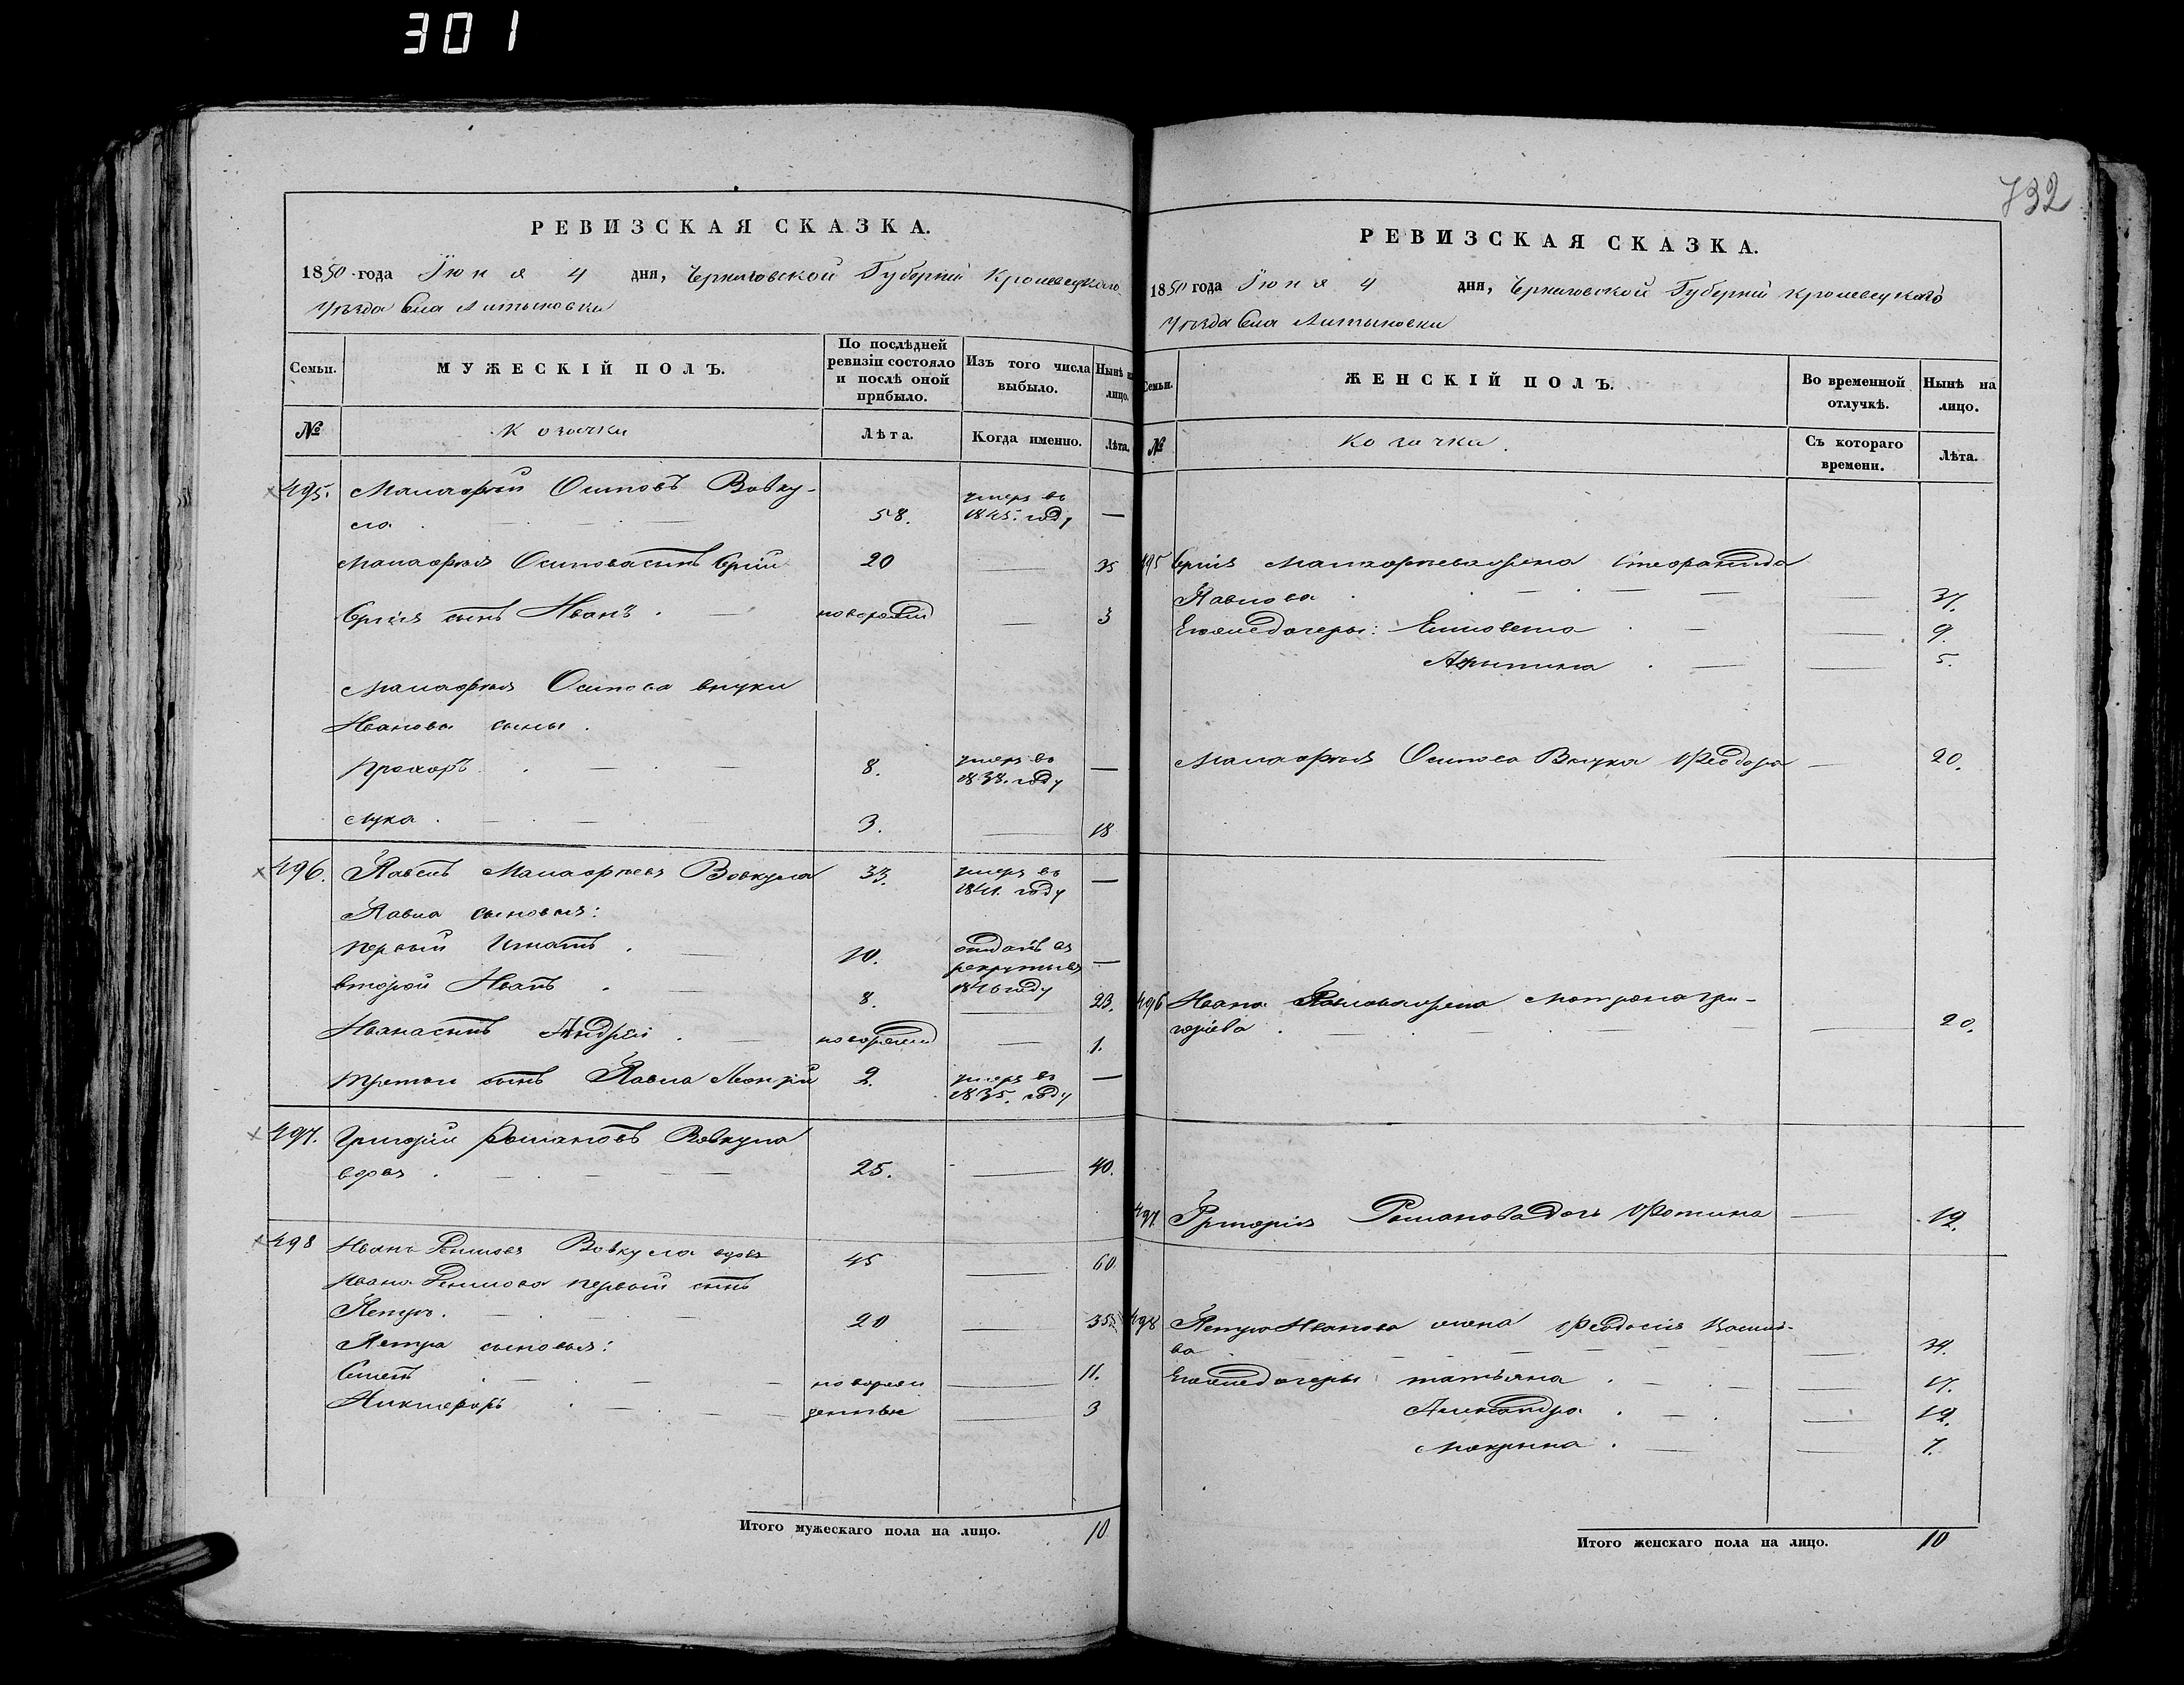 301
732
РЕВИЗСКАЯ СКАЗКА.
1850 года Июня 4 дня, Черниговской Губернии Кролевецкаго
Уезда Села Литвиновки
Семьи.
МУЖЕСКІЙ ПОЛЪ.
По послѣдней ревизіи состояло и послѣ оной прибыло.
Изъ того числа выбыло.
Нынѣ на лицо.
№
Козачки
Лѣта.
Когда именно.
Лѣта.
495. Малафий Осиповъ Вовку-
ла 58. умеръ въ 1845. году —
Малафия Осипова сынъ 20 — 35
сынъ Иванъ новорожд — 3
Малафия Осипова внуки
Иванова сыны
Прохоръ 8. умеръ въ 1838. году —
Лука 3. — 18
496. Павелъ Малафиевъ Вовкула 33. умеръ въ 1841. году —
Павла сыновья:
первый Игнатъ 10. отданъ въ рекруты въ 1846 году —
второй Иванъ 8. — 23.
Ивана сынъ Андрей новорожд — 1.
третий сынъ Павла 2. умеръ въ 1835. году —
497. Григорий Романовъ Вовкула
вдовъ 25. — 40.
498 Иванъ Вовкула вдовъ 45 — 60
Ивана первый сынъ
Петръ. 20 — 35
Петра сыновья:
новорож — 11.
Никифоръ денные — 3
Итого мужескаго пола на лицо. 10
РЕВИЗСКАЯ СКАЗКА.
1850 года Июня 4 дня, Черниговской Губернии Кролевецкаго
Уезда Села Литвиновки
Семьи.
ЖЕНСКІЙ ПОЛЪ.
Во временной отлучкѣ.
Нынѣ на лицо.
№
Козачки.
Съ котораго времени.
Лѣта.
495 Малафиева жена Стефанида
Павлова — 37.
Его же дочери: Елисовета — 9.
5.
Малафия Осипова Внука Феодора — 20.
496 Ивана Павлова жена Матрона Гри-
горіева — 20.
497 Григория Романова дочь Фотина — 12.
498 Петра Иванова жена Феодосия
ва — 34.
Его же дочери татьяна — 17.
Александра — 12.
Макрина — 7.
Итого женскаго пола на лицо. 10